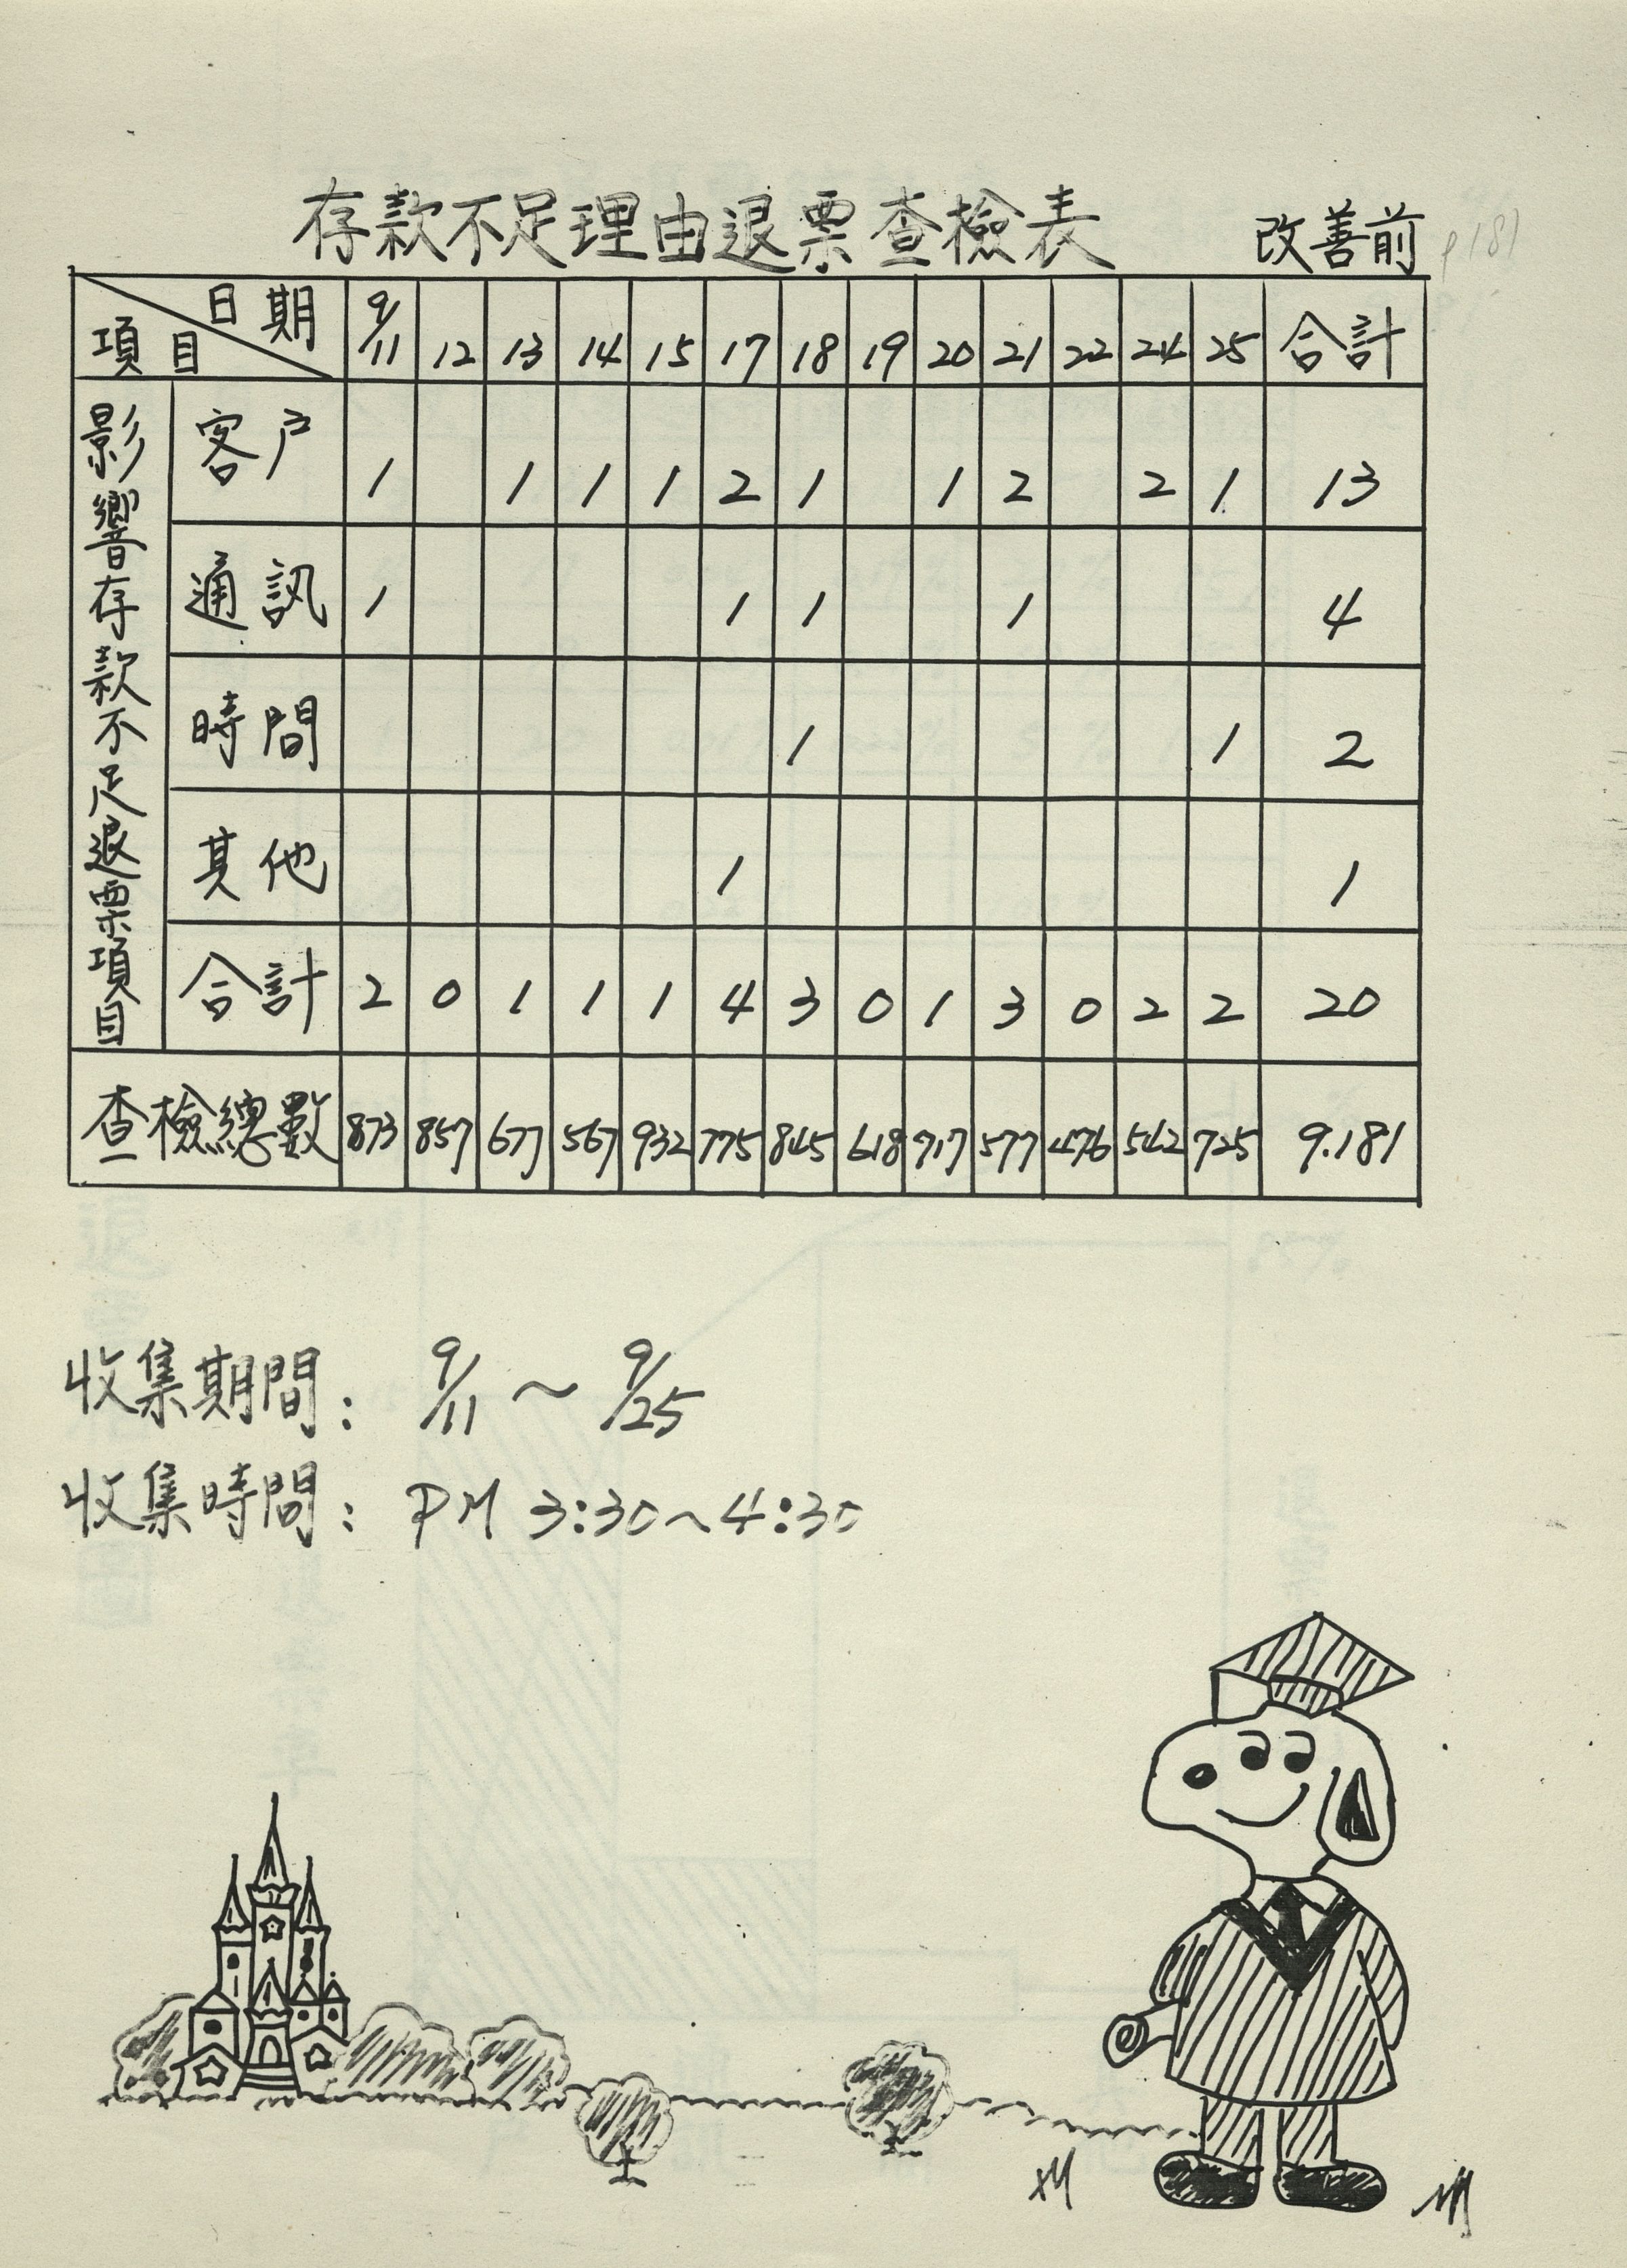 存款不足理由退票查檢表 改善前 p181
日期 9/11 12 13 14 15 17 18 19 20 21 22 24 25 合計
項目
影響存款不足退票項目
客戶 1 1 1 1 2 1 1 2 2 1 13
通訊 1 1 1 1 4
時間 1 1 2
其他 1 1
合計 2 0 1 1 1 4 3 0 1 3 0 2 2 20
查檢總數 873 857 677 567 932 775 845 618 717 577 476 542 725 9.181
收集期間: 9/11 ~ 9/25
收集時間: PM 3:30~4:30